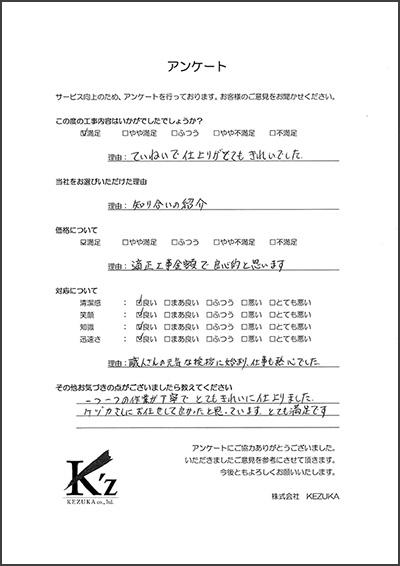 アンケート
サービス向上のため、アンケートを行っております。お客様のご意見をお聞かせください。
この度の工事内容はいかがでしたでしょうか?
☑満足 □やや満足 □ふつう □やや不満足 □不満足
理由：ていねいで仕上りがとてもきれいでした
当社をお選びいただけた理由
理由：知り合いの紹介
価格について
☑満足 □やや満足 □ふつう □やや不満足 □不満足
理由：適正工事金額で良心的と思います
対応について
清潔感 ： ☑良い □まあ良い □ふつう □悪い □とても悪い
笑顔 ： ☑良い □まあ良い □ふつう □悪い □とても悪い
知識 ： ☑良い □まあ良い □ふつう □悪い □とても悪い
迅速さ ： ☑良い □まあ良い □ふつう □悪い □とても悪い
理由：職人さんの元気な挨拶に始り、仕事も でした.
その他お気づきの点がございましたら教えてください
一つ一つの作業が丁寧で とてもきれいに仕上りました.
ケヅカさんにお任せして良かったと思っています. とても満足です
アンケートにご協力ありがとうございました。
いただきましたご意見を参考にさせて頂きます。
今後ともよろしくお願いいたします。
K'z
KEZUKA co., ltd.
株式会社 KEZUKA